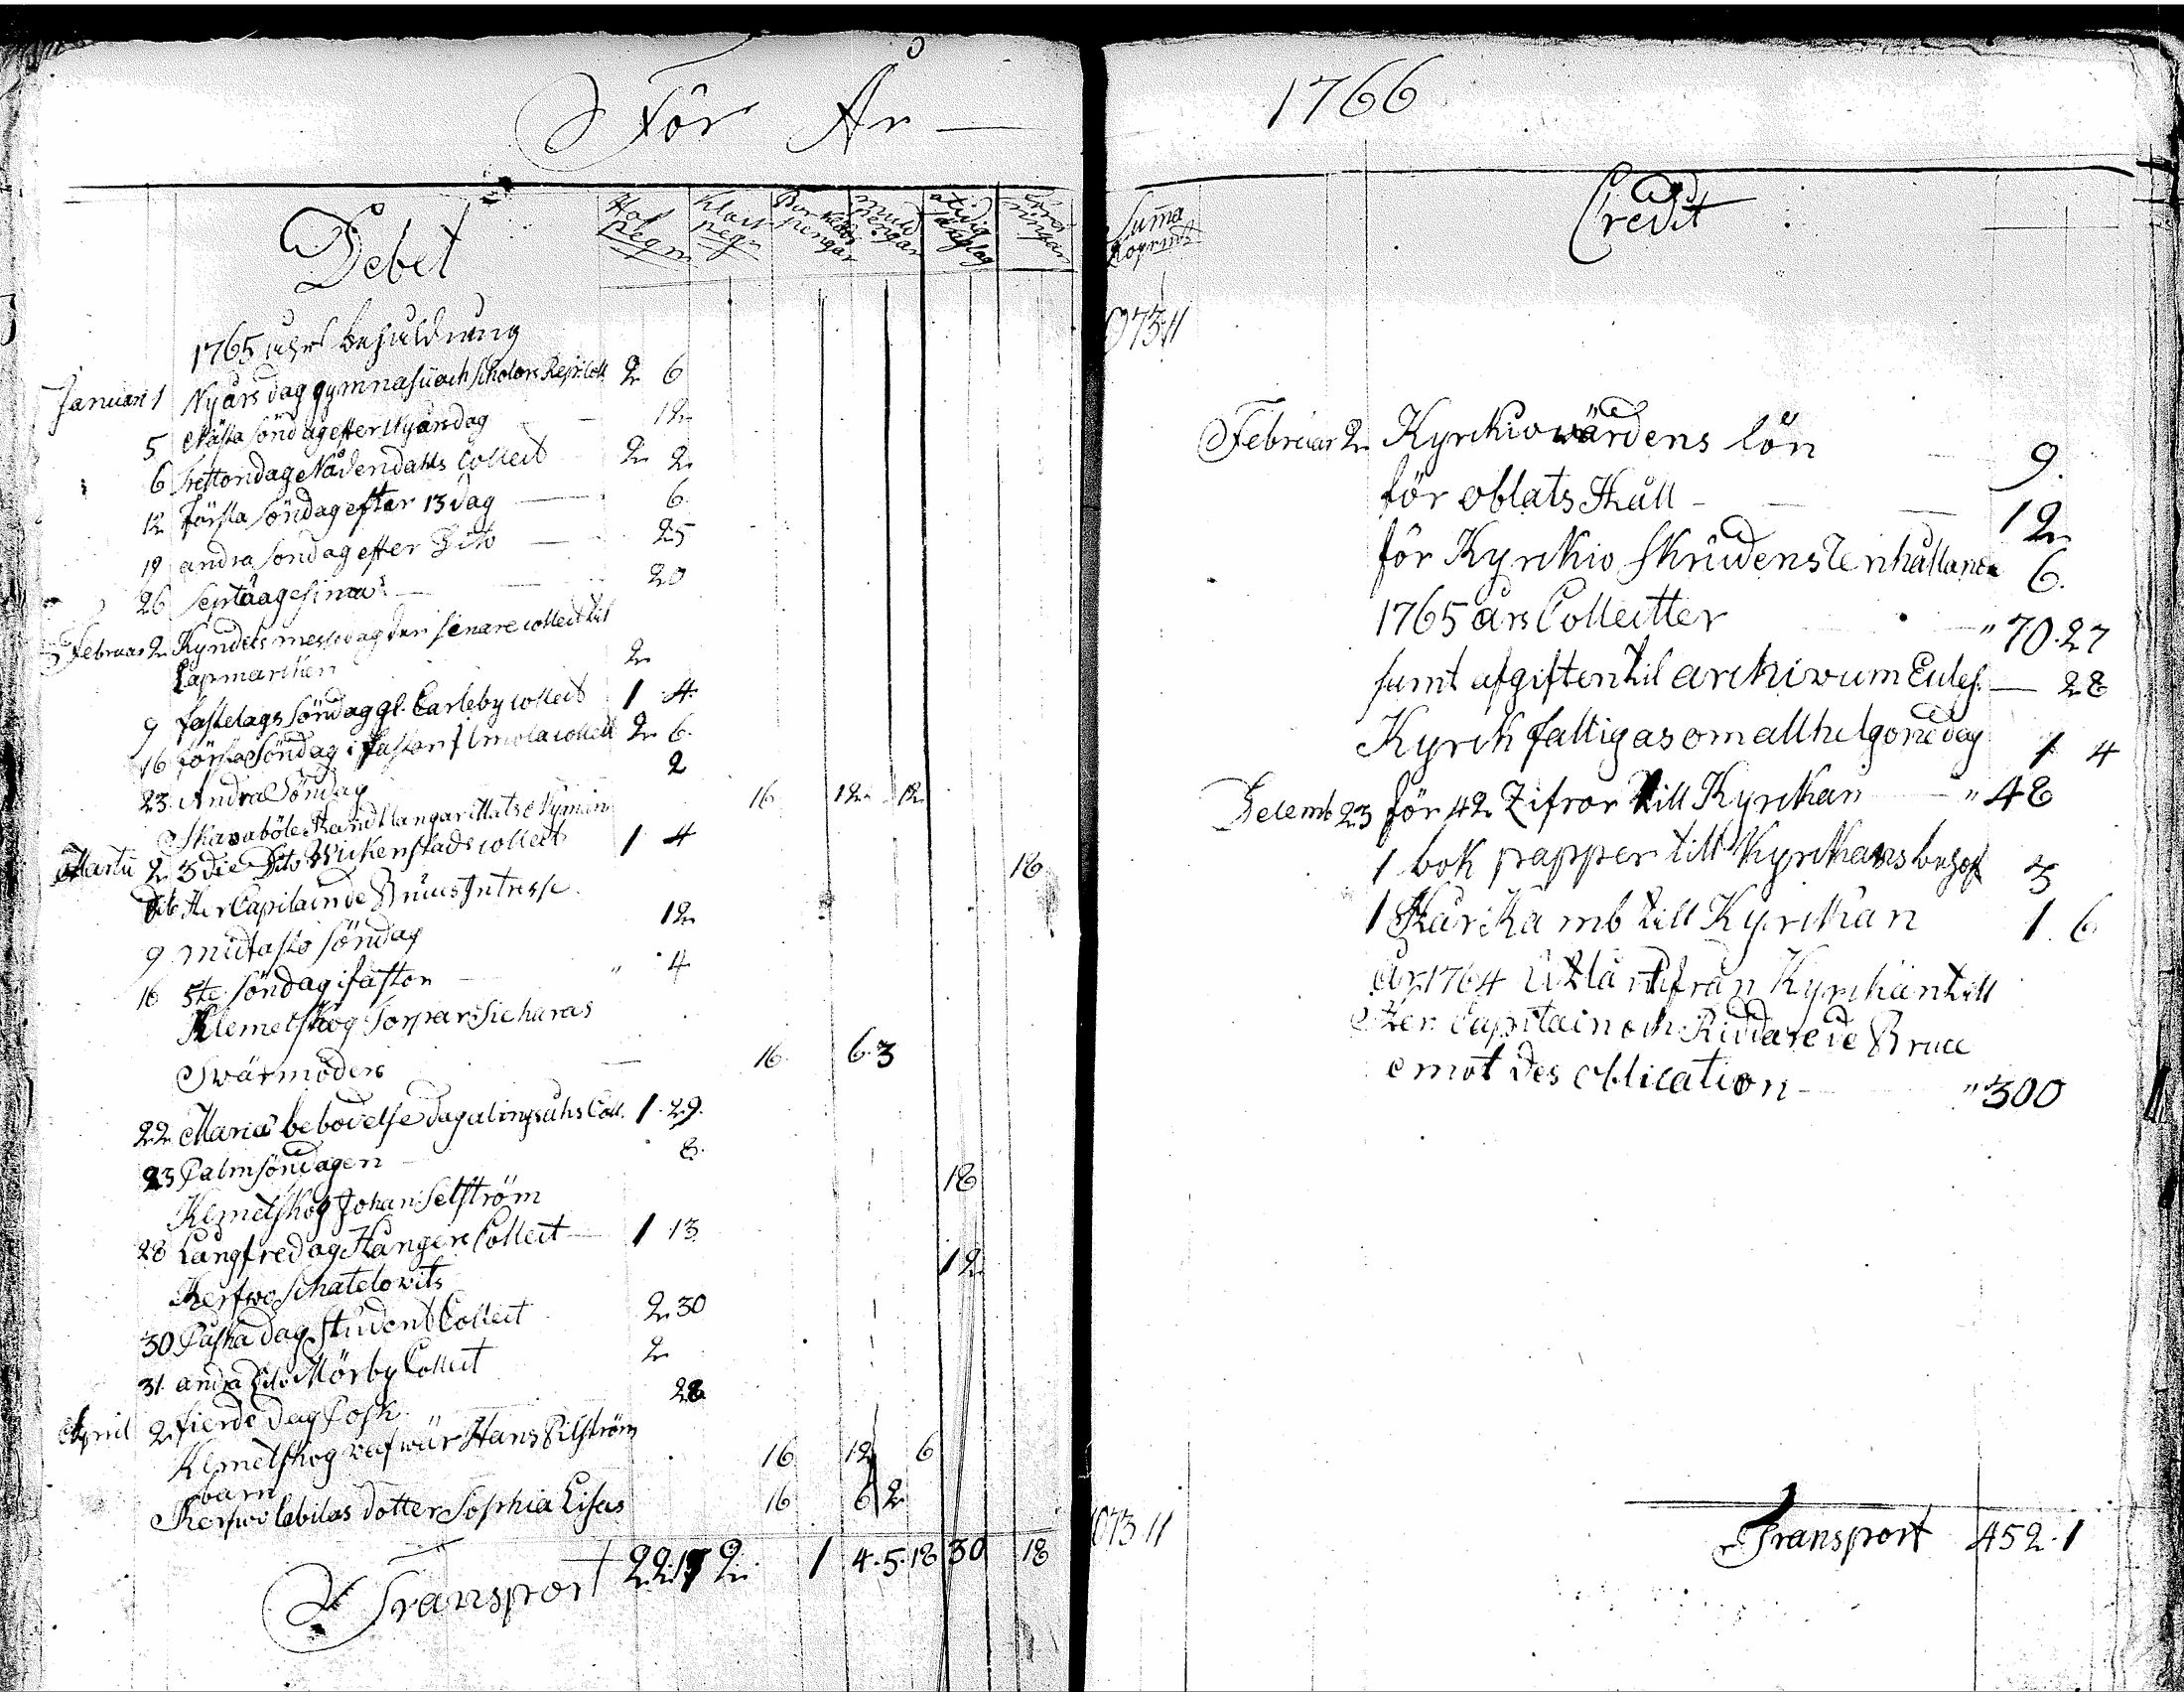 För År —
Debet
Hof
pegn
Klock
pegn
pengar
pengar
1765 behuldnung
Januari 1 Nyårsdag gymnasii och Scholors Repr: Coll 2 6
5 Nästa söndag efter Nyårsdag — 12
6 Trettondag Nådendahls Collect 2 2
12 Första Söndag efter 13 dag — 6
19 andra söndag efter Dito — 25
26 Septuagesima — 20
Februar 2 Kyndels messodag den senare collect til
Lapmarcken 2
9 fastelags Söndag gl. Carleby collect 1 4
16 första Söndag i fastan Ilmola collect 2 6
23 Andra Söndag 2
Skavaböle Mats Nyman 16 12 12
Martii 2 3die Dito collect 1 4
Dito Her Capitain de Bruces Intresse 18
9 midfasto söndag 12
16 5te söndag i faston " 4
Klemetskog Torpar
Swärmoders — 16 6 3
22 Mariæ bebodelse dag alingsahs Coll. 1 29
23 Palmsöndagen 8
Klemetskog Johan Selström 18
28 Långfredag Hangers Collect 1 13
Kerfwo 12
30 Påska dag Student Collect 2 30
31 andra Dito Mörby Collect 2
April 2 fierde Dag Posk 28
Klemetskog Hans Pilström
barn 16 12 6
Kerfwo dotter Sophia Lisas 16 6 2
Transport 22 17 2 1 4 5 18 30 18
1766
Suma
Koprmt
Credit
073 11
Februar 2 Kyrckiowärdens lön 9
för oblats Håll — 12
för Kyrckio Skrudens Renhållande 6
1765 års Collectter " 70 27
samt afgiften til archivum Eccles. — 28
Kyrck fattigas om allhelgone dag 1 4
Decemb 23 för 42 Zifror till Kyrckan " 48
1 bok papper till Kyrckans behof 3
1 Hårkamb till Kyrckan 1 6
år 1764 ifrån Kyrckan till
Her Capitain och Riddare de Bruce
emot des oblication — " 300
073 11
Transport 452 1